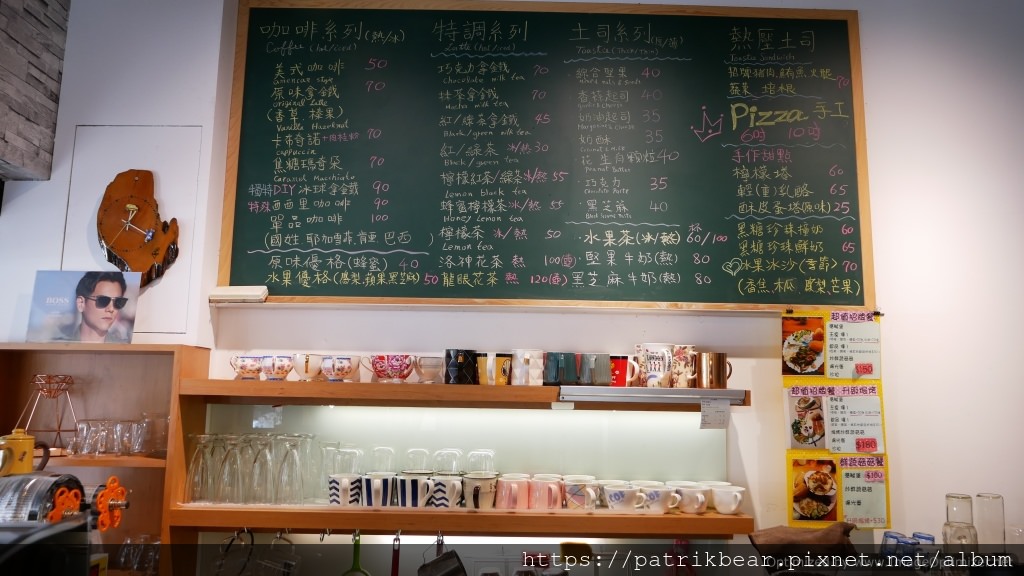 咖啡系列(熱/冰)
Coffee (hot/cold)
美式咖啡 50
american style
原味拿鐵 70
original Latte
(香草 榛果)
Vanilla Hazelnut
卡布奇諾 70
cappuccino
焦糖瑪奇朵 70
Caramel Macchiato
獨特DIY 冰球拿鐵 90
特殊 西西里咖啡 90
單品咖啡 100
(國姓 耶加雪菲 肯亞 巴西)
原味優格(蜂蜜) 40
水果優格(鳳梨.蘋果.黑芝麻) 50
特調系列
Latte (hot/cold)
巧克力拿鐵 70
chocolate milk tea
抹茶拿鐵 70
Matcha milk tea
紅/綠茶拿鐵 45
Black/green milk tea
紅/綠茶 冰/熱 30
Black/green tea
檸檬紅茶/綠茶 冰/熱 55
Lemon black tea
蜂蜜檸檬茶 冰/熱 55
Honey Lemon tea
檸檬茶 冰/熱 50
Lemon tea
洛神花茶 熱 100(壺)
龍眼花茶 熱 120(壺)
土司系列
綜合堅果 40
香蒜起司 40
奶油起司 35
奶酥 35
花生月顆粒 40
Peanut Butter
·巧克力 35
Chocolate Paste
·黑芝麻 40
·水果茶(冰/熱) 60/100
·堅果牛奶(熱) 80
黑芝麻牛奶(熱) 80
熱壓土司
Toasta Sandwich
蔬菜 培根 70
Pizza 手工
6吋 10吋
手作甜點
檸檬塔 60
輕(重)乳酪 65
酥皮蛋塔(原味) 25
黑糖珍珠撞奶 60
黑糖珍珠鮮奶 65
水果冰沙(季節) 70
(香蕉.木瓜.鳳梨.芒果)
BOSS
超值招牌餐
$150
超值招牌餐 升級焗烤
$180
鮮蔬菇菇餐
$180
https://patrikbear.pixnet.net/album